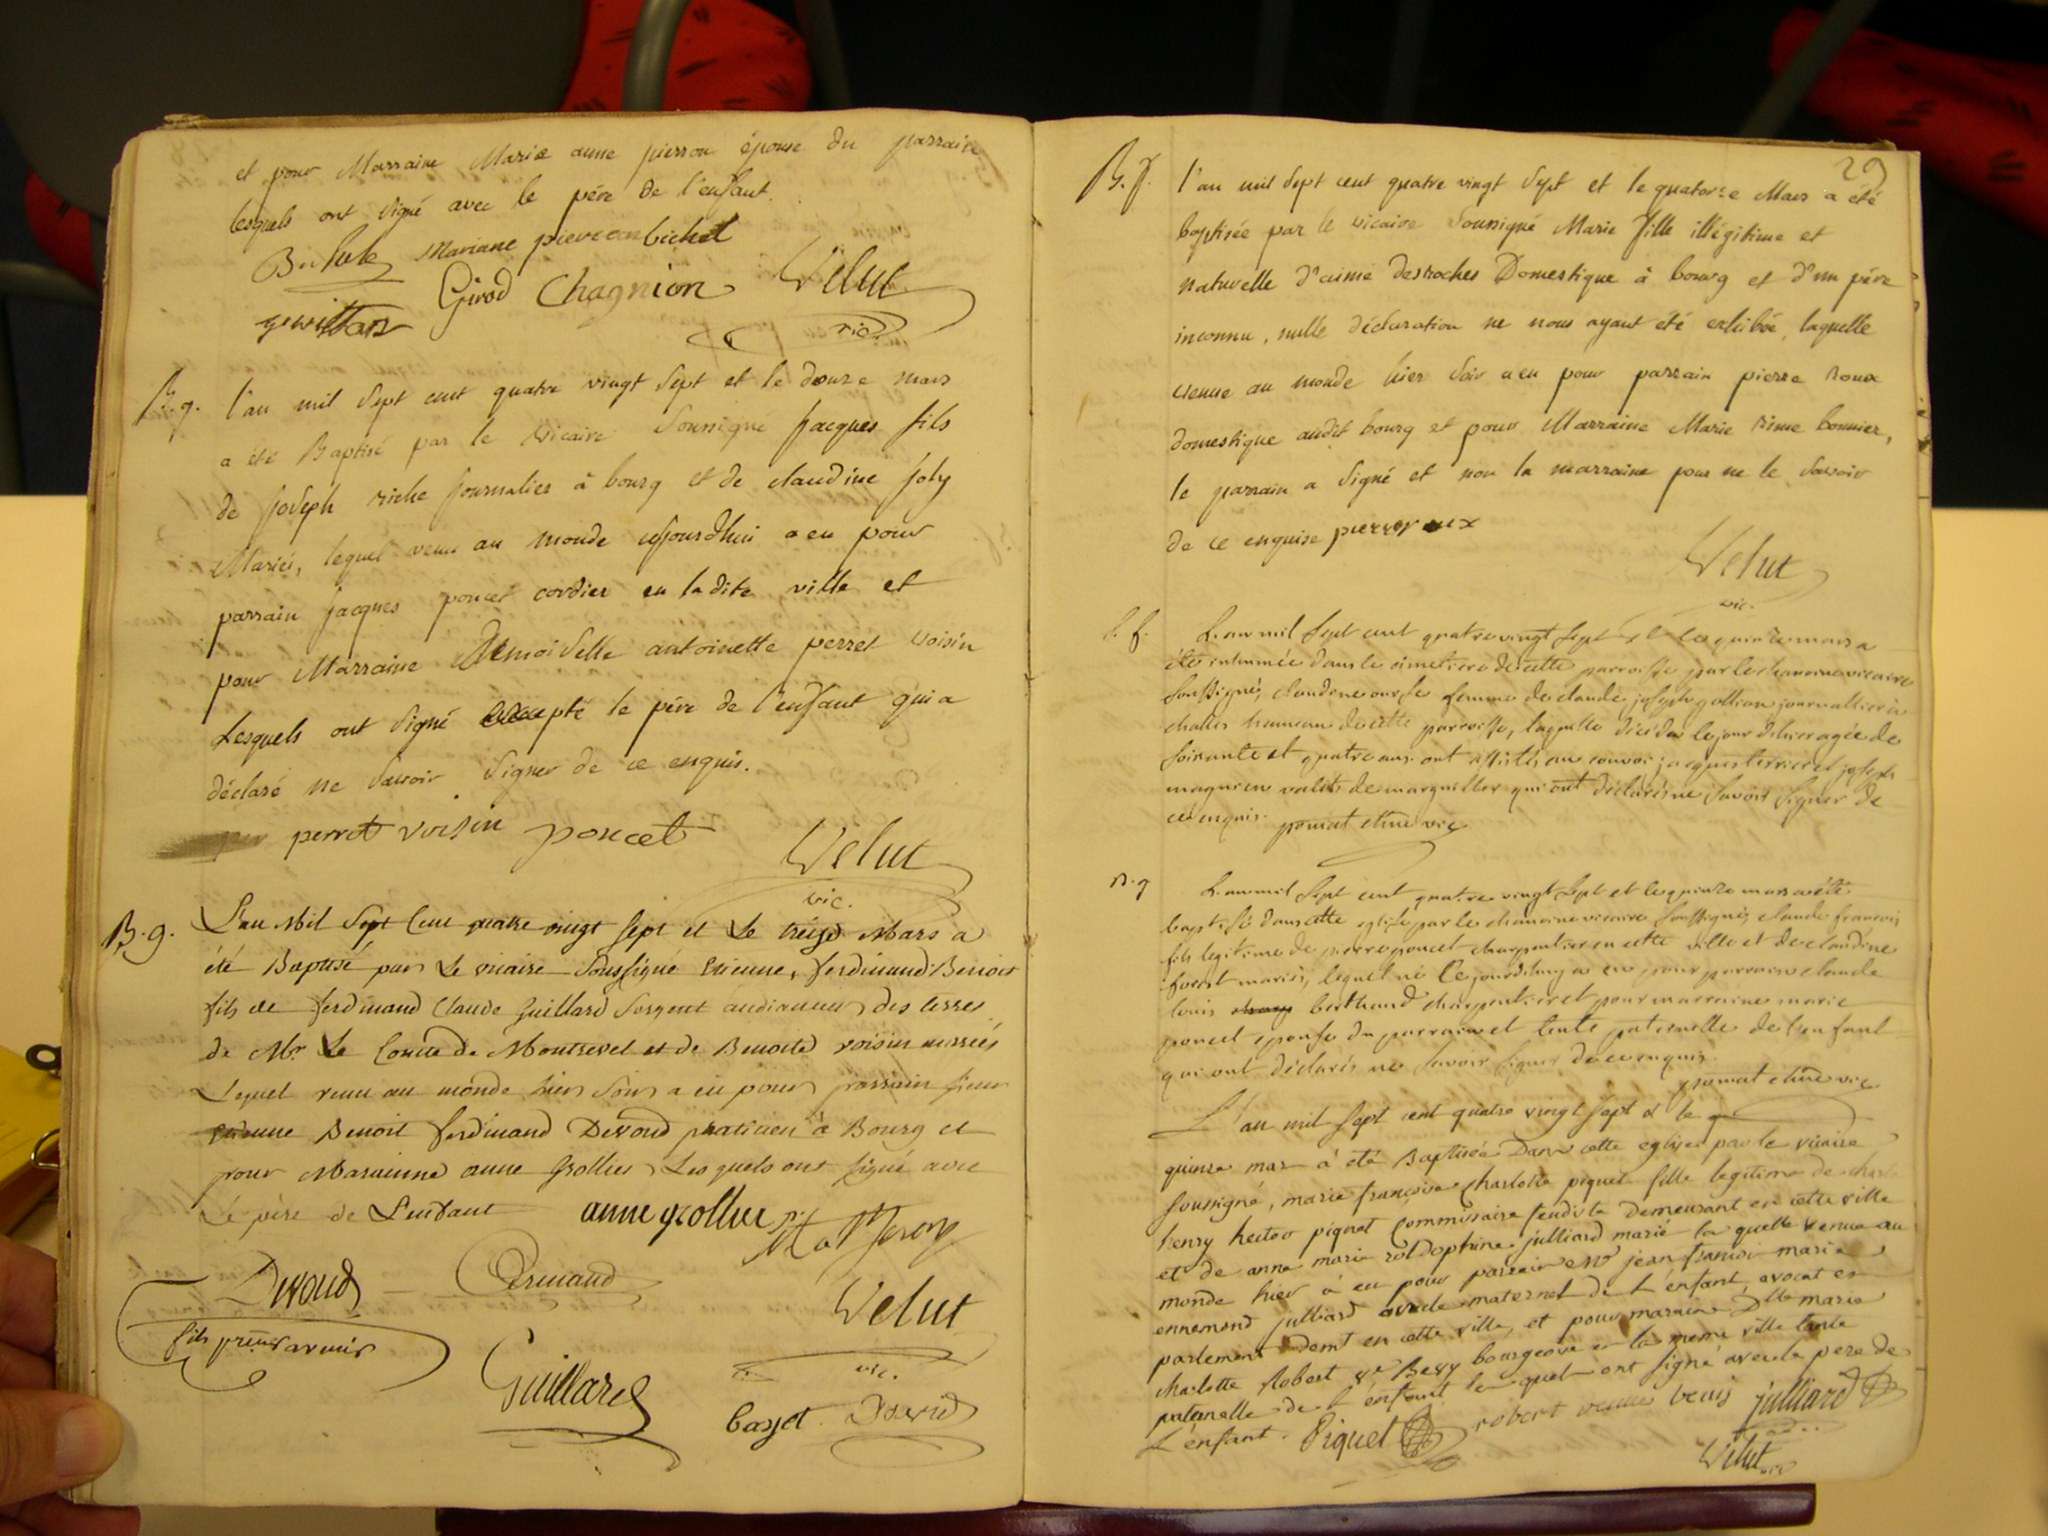 et pour Marraine Marie anne pierron épouse du parrain
lesquels ont signé avec le pére de l'enfant.
Mariane bichet
Girod Chagnion Velut
vic.
B. g. l'an mil sept cent quatre vingt sept et le douze mars
a été Baptisé par le vicaire soussigné jacques fils
de joseph riche journalier à bourg et de claudine joly
Mariés, lequel venu au monde cejourdhui a eu pour
parrain jacques poncet cordier en ladite ville et
pour Marraine Demoiselle antoinette perret voisin
Lesquels ont signé excepté le pére de l'enfant qui a
déclaré ne savoir signer de ce enquis.
perret voisin poncet
Velut
vic.
B. g. L'an Mil Sept Cent quatre vingt sept et Le treize Mars a
été Baptisé par Le vicaire Soussigné Etienne, ferdinand Benoit
fils de ferdinand Claude Guillard Sergent audiancier des terres
de Mr Le Comte de Montrevel et de Benoite voisin mariés
Lequel venu au monde hier soir a eu pour parrain sieur
etienne Benoit ferdinand Devoud praticien à Bourg et
pour Maraienne anne Grollier Lesquels ont signé avec
Le père de L'enfant anne grollier
Devoud
Velut
fils
vic.
Guillard
29
B. f. l'an mil sept cent quatre vingt sept et le quatorze Mars a été
baptisée par le vicaire soussigné Marie fille illégitime et
naturelle d'aimé desroches Domestique à bourg et d'un pére
inconnu, nulle déclaration ne nous ayant été exhibée, laquelle
venue au monde hier soir a eu pour parrain pierre roux
domestique audit bourg et pour Marraine Marie rime bonnier,
le parrain a signé et non la marraine pour ne le savoir
de ce enquise pierre roux
Velut
vic.
L'an mil sept cent quatre vingt sept et le quinze mars a
été inhumée dans le cimetiere de cette parroisse par le chanoine vicaire
soussigné, claudine femme de claude joseph gollion journallier à
challes hameau de cette parroisse, laquelle décéda le jour d'hier agée de
soixante et quatre ans. ont assisté au convoi jacques terrier et joseph
magnien valets de marguillier qui ont déclarés ne savoir signer de
ce enquis.
B. g L'an mil sept cent quatre vingt sept et le quinze mars a été
baptisé dans cette eglise par le chanoine vicaire soussigné, claude françois
fils legitime de pierre poncet charpentier en cette ville et de claudine
mariés, lequel né ce jourdhuy a eu pour parrain claude
louis berthaud charpentier et pour marraine marie
poncet epouse du parrain et tente paternelle de l'enfant
qui ont déclarés ne savoir signer de ce enquis.
L'an mil sept cent quatre vingt sept et le
quinze mar à été Baptisée Dans cette eglise par le vicaire
soussigné, marie françoise Charlotte piquet fille legitime de
henry hector piquet Commissaire feudiste Demeurant en cette ville
et de anne marie julliard marié la quelle venue au
monde hier à eu pour parrain jean françoi marie
ennemond julliard oncle maternel de L enfant, avocat en
parlement demt en cette ville, et pour maraine Dlle marie
charlotte Robert bourgeoise en la meme ville tante
paternelle de L enfant le quel ont signé avec le pere de
L enfant. Piquet robert julliard
Velut